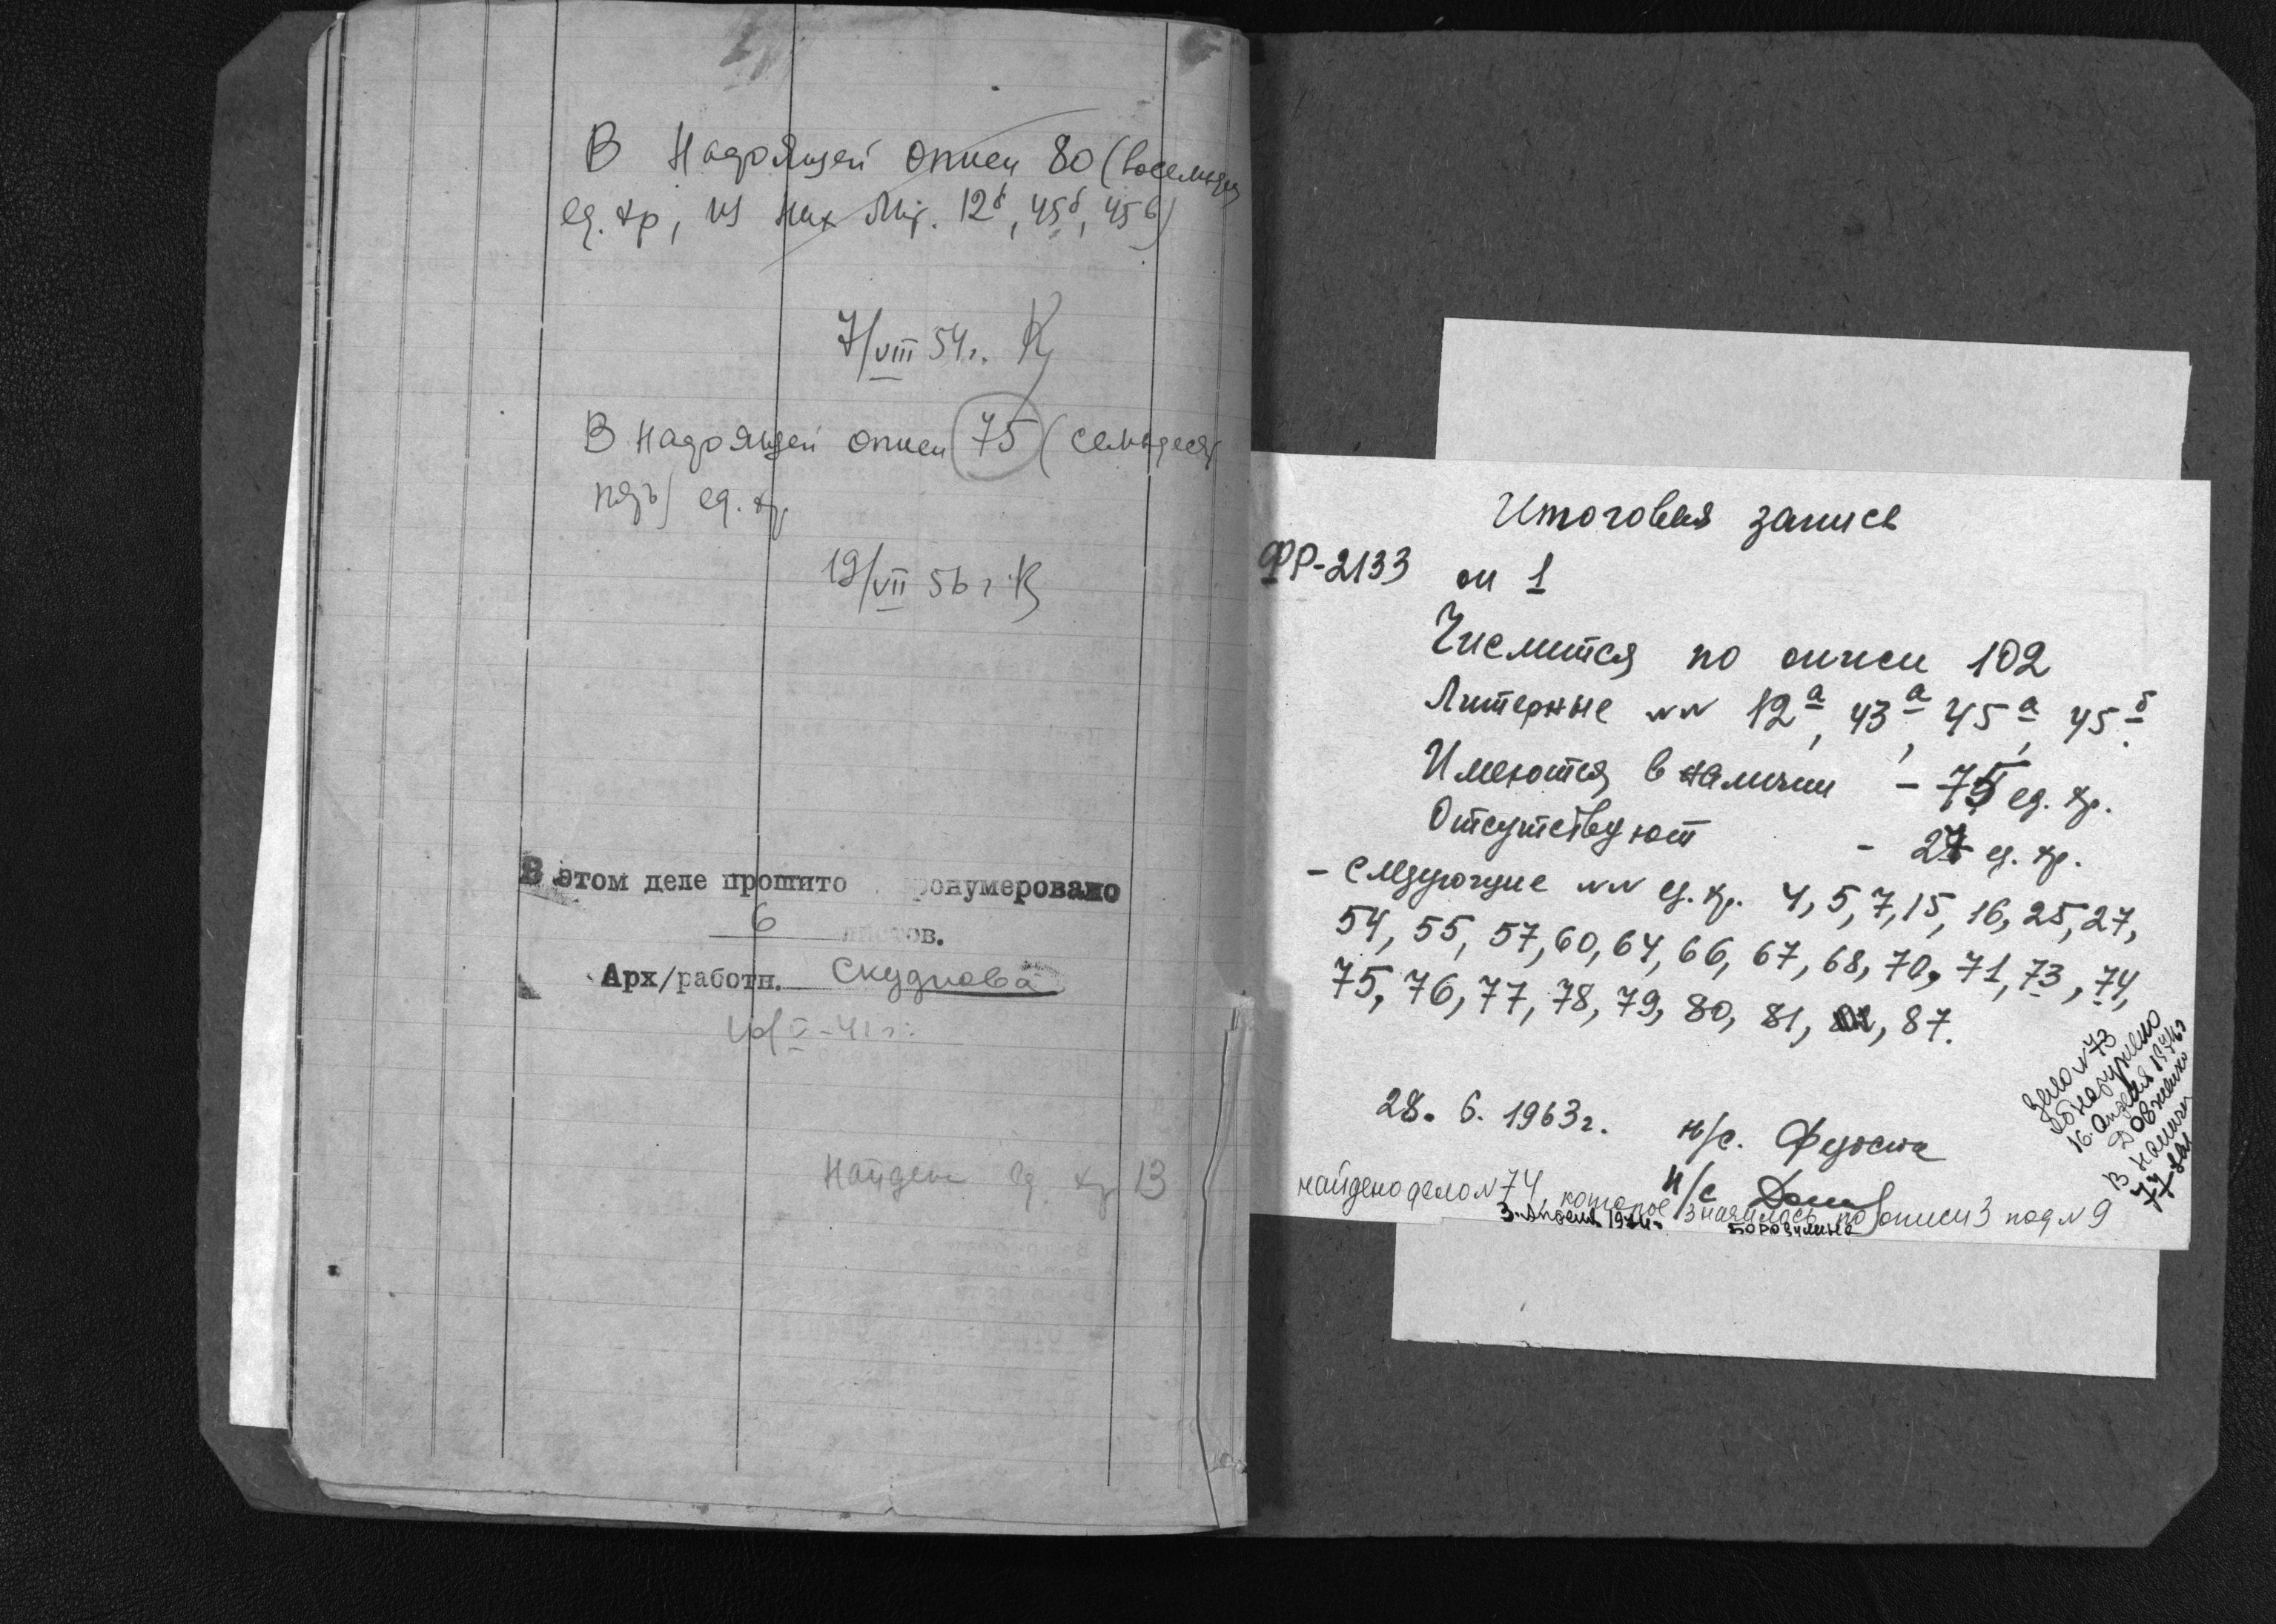 В настоящей описи 80 (восемьдесят
ед. хр, из них лит. 12б, 45б, 45в)
7/VIII 54 г.
В настоящей описи 75 (семьдесят
пять) ед. хр
19/VII 56 г
В этом деле прошито пронумеровано
6 листов.
Арх/работн. Скуднова
V-41 г.
Найден ед. хр 13
Итоговая запись
ФР-2133 оп 1
Числится по описи 102
Литерные №№ 12а, 43а, 45а, 45б.
Имеются в наличии - 75 ед. хр.
Отсутствуют - 27 ед. хр.
- следующие №№ ед. хр. 4, 5, 7, 15, 16, 25, 27,
54, 55, 57, 60, 64, 66, 67, 68, 70, 71, 73, 74,
75, 76, 77, 78, 79, 80, 81, 87.
28. 6. 1963 г. н/с.
н/с
найдено дело № 74, которое значилось по описи 3 под № 9
3. апреля Бородулина
Дело № 73
обнаружено
16. апреля
Довженко
В наличи
77